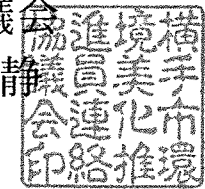 会
静
横手市環
境美化推
進員連絡
協議会印